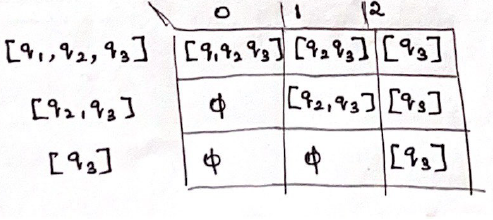 0 1 2
[q₁, q₂, q₃] [q₁q₂q₃] [q₂q₃] [q₃]
[q₂, q₃] ϕ [q₂, q₃] [q₃]
[q₃] ϕ ϕ [q₃]